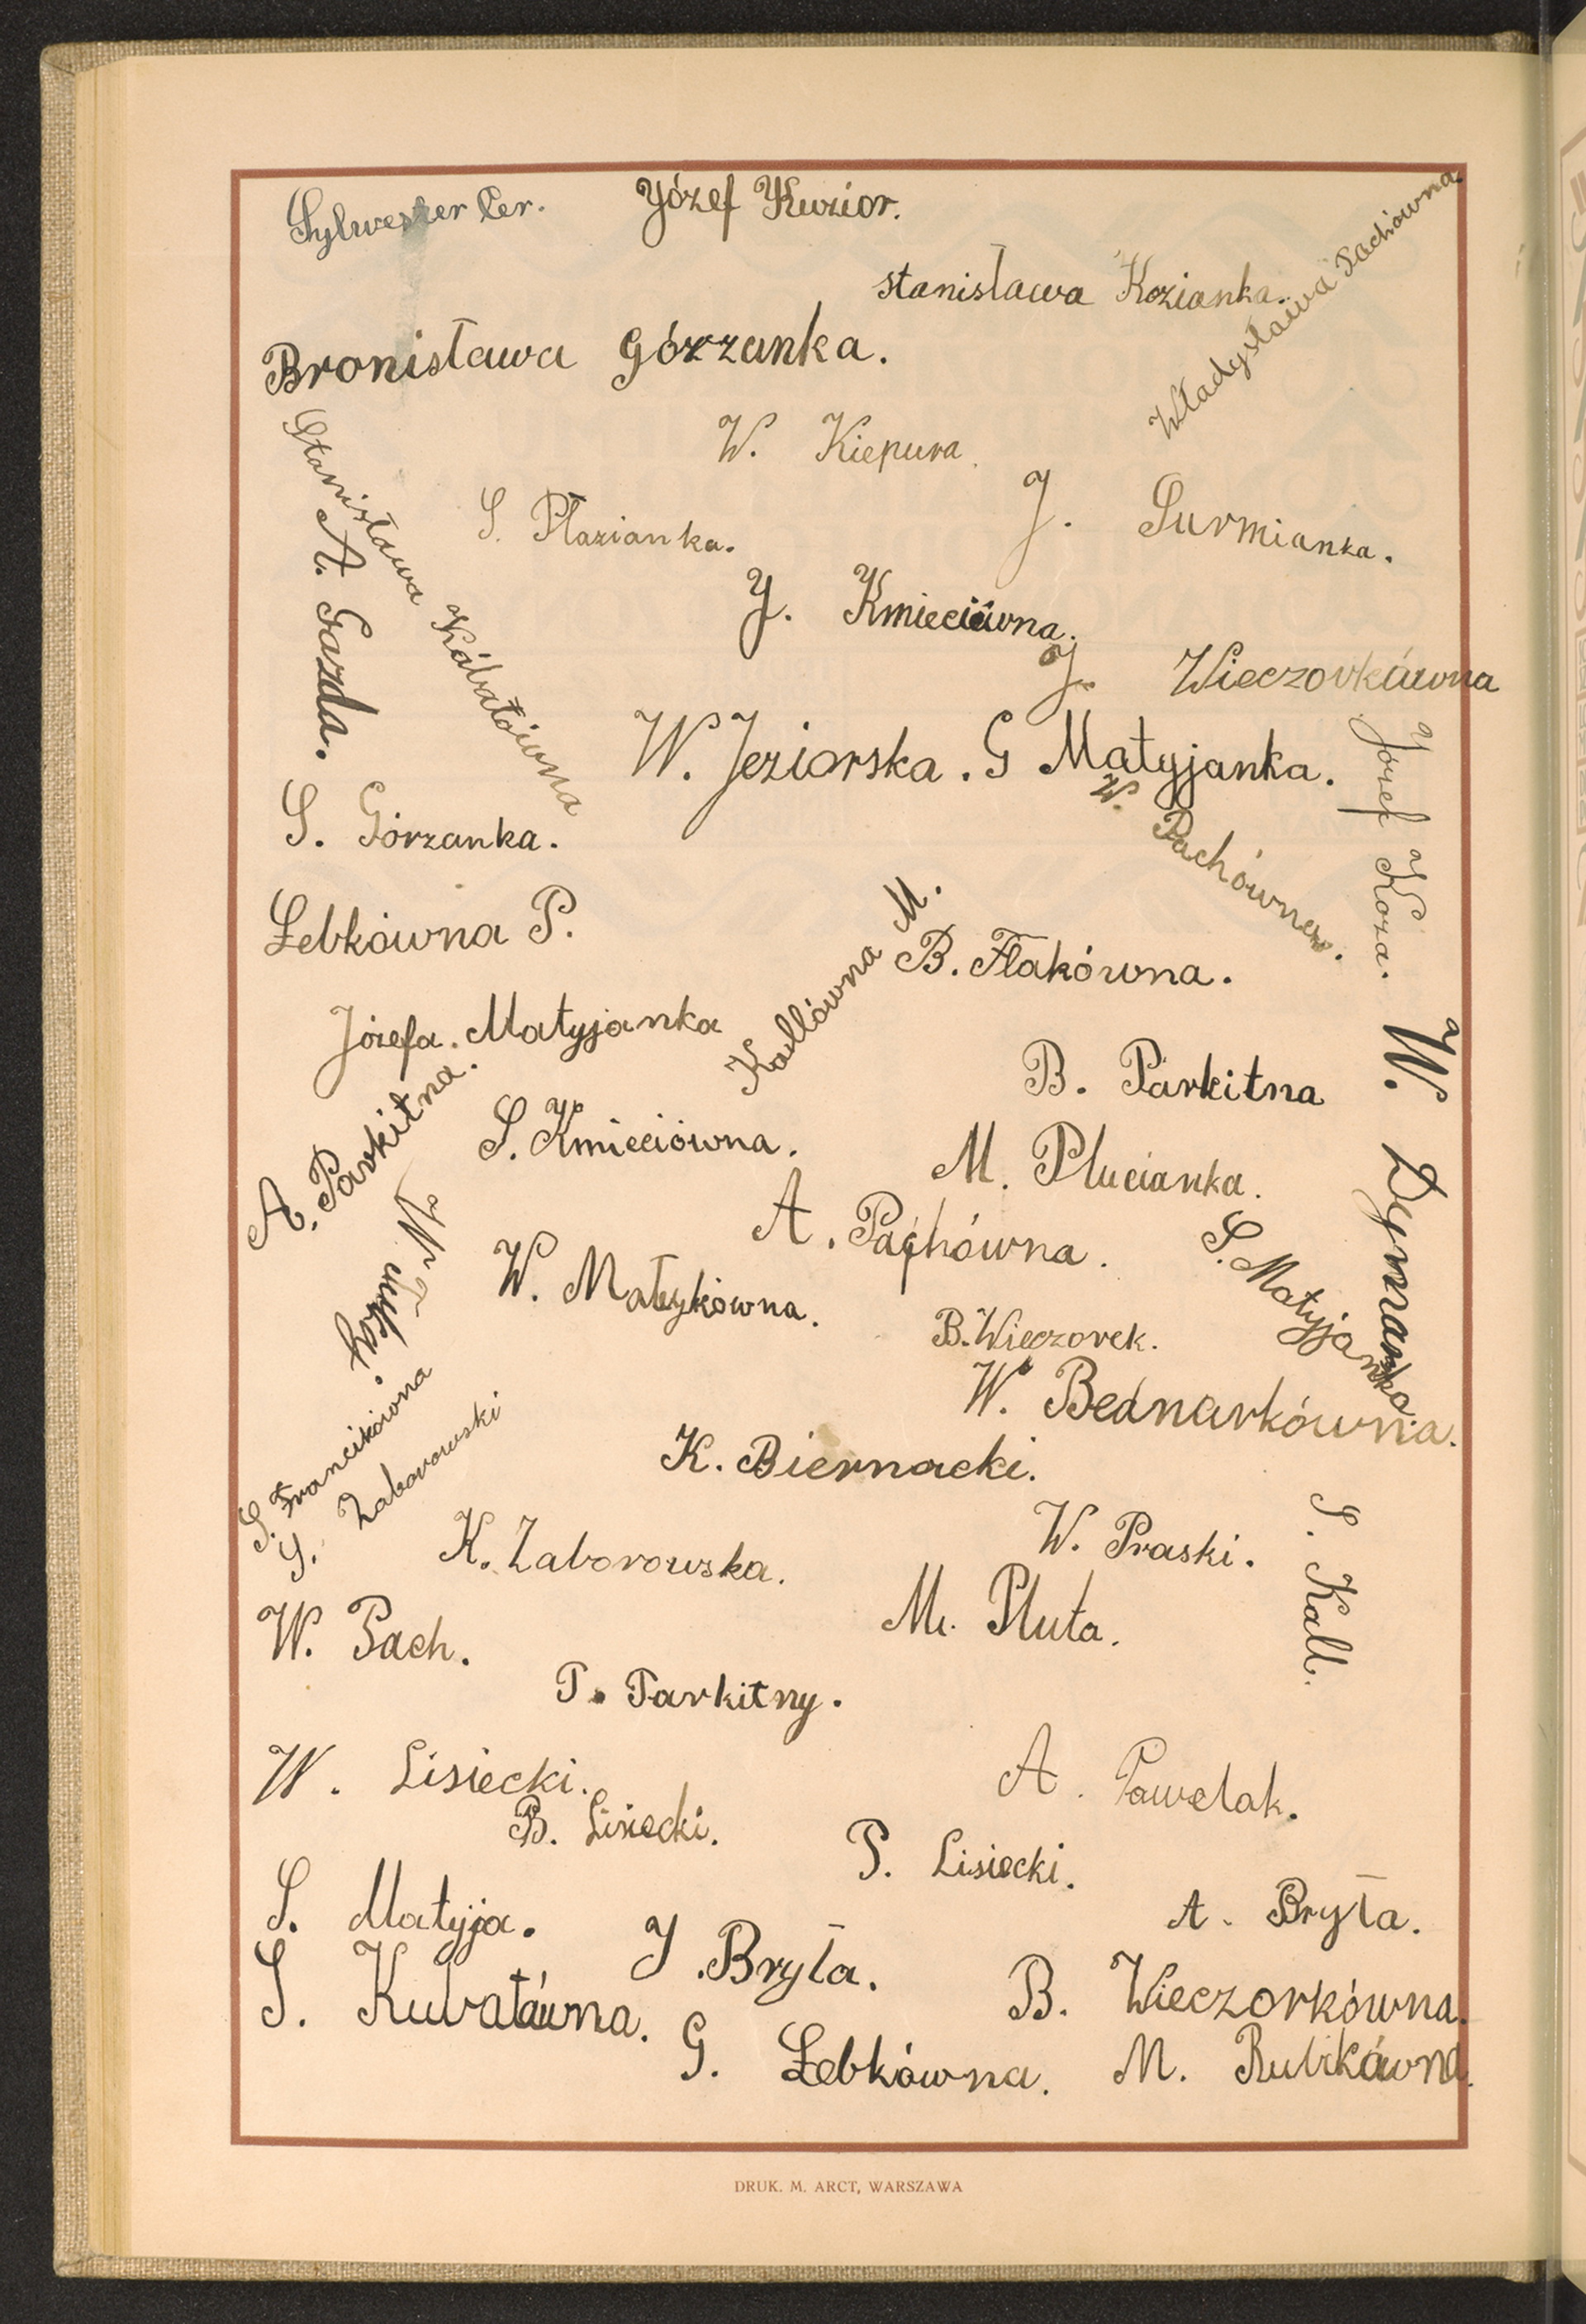 Sylwester Cer.
Józef Kuzior.
stanisława Kozianka.
Władysława Pachówna
Bronisława Górzanka.
W. Kiepura.
Stanisława
S. Płazianka.
J. Surmianka.
A. Gazda.
J. Kmieciówna.
J. Wieczorkówna
W. Jeziorska.
G Matyjanka.
Józef Koza.
S. Górzanka.
W. Pachówna.
Łebkówna P.
Kallówna M.
B. Flakówna.
Józefa. Matyjanka
W. Dymranka.
B. Parkitna
A. Parkitna.
S. Kmieciówna.
M. Plucianka.
A. Pachówna.
S. Matyjanka.
W. Matykówna.
B. Wieczorek.
W. Bednarkówna.
S. Francikówna
S. Zaborowski
K. Biernacki.
K. Zaborowska.
W. Praski.
S. Kall.
W. Pach.
M. Pluta.
P. Parkitny.
W. Lisiecki.
A. Pawelak.
B. Lisiecki.
P. Lisiecki.
S. Matyja.
A. Bryła.
J. Bryła.
S. Kubatówna.
B. Wieczorkówna.
G. Łebkówna.
M. Rubikówna.
DRUK. M. ARCT, WARSZAWA